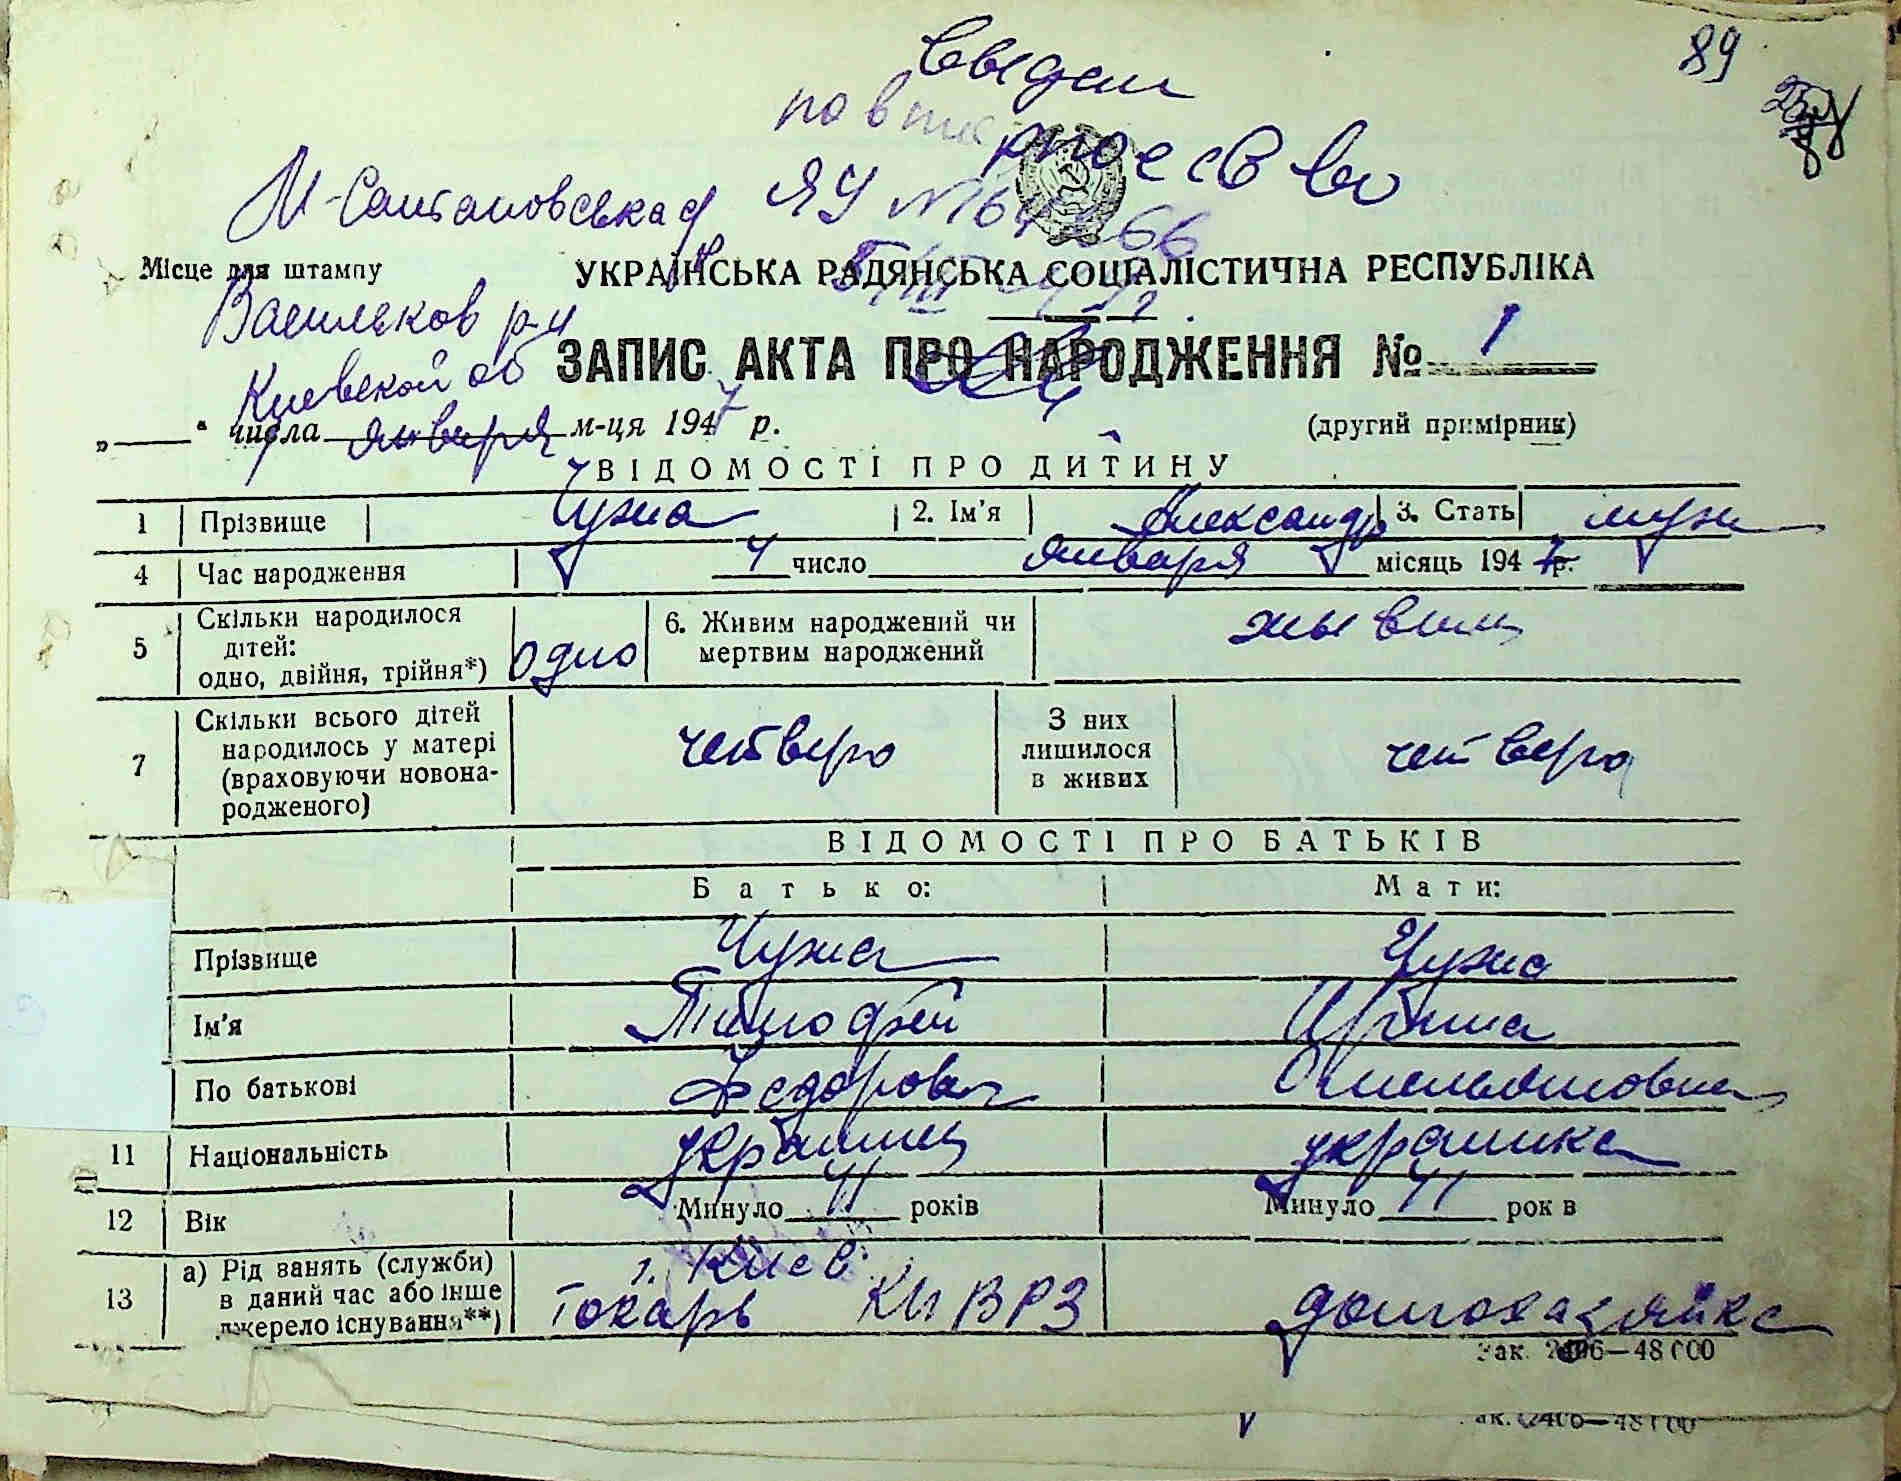 89
по втис
М-Солтановська
ЯУ №
Місце для штампу
УКРАЇНСЬКА РАДЯНСЬКА СОЦІАЛІСТИЧНА РЕСПУБЛІКА
Васильков р-н
ЗАПИС АКТА ПРО НАРОДЖЕННЯ № 1
Киевской об
„ “ числа января м-ця 1947 р.
(другий примірник)
ВІДОМОСТІ ПРО ДИТИНУ
1 Прізвище Чужа 2. Ім'я Александр 3. Стать муж
4 Час народження 4 число января місяць 1947 р.
5 Скільки народилося дітей: одно, двійня, трійня*) одно 6. Живим народжений чи мертвим народжений живым
7 Скільки всього дітей народилось у матері (враховуючи новонародженого) четверо З них лишилося в живих четверо
ВІДОМОСТІ ПРО БАТЬКІВ
Батько: Мати:
Прізвище Чужа Чужа
Ім'я Тимофей Ирина
По батькові Федорович Омельяновна
11 Національність украинец украинка
12 Вік Минуло 41 років Минуло 41 рок в
13 а) Рід занять (служби) в даний час або інше джерело існування**) г. Киев
Токарь КИВРЗ домохазяйка
Зак. 2406—48000
ак. 2406—48000